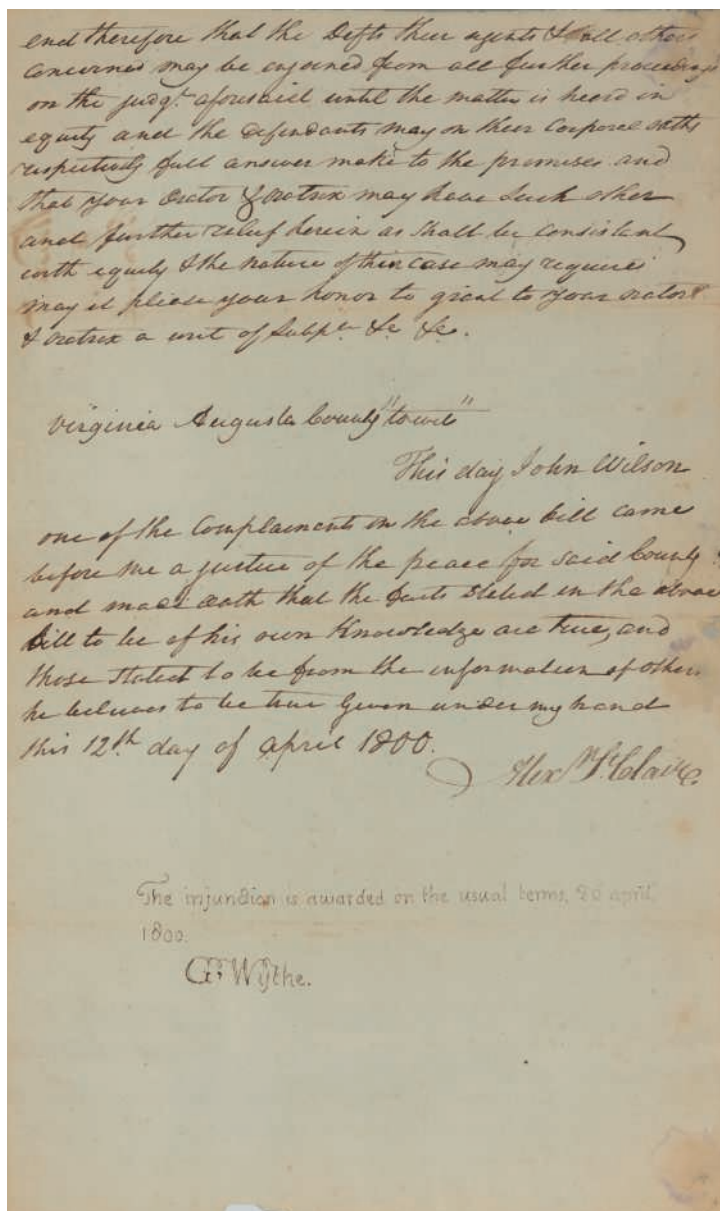 end therefore that the Defts their agents & all others
concerned may be enjoined from all further proceedings
on the judgt. aforesaid until the matter is heard in
equity and the defendants may on their corporal oaths
respectively full answer make to the premises and
that your Orator & Oratrix may have such other
and further relief herein as shall be consistant
with equity & the nature of their case may require
may it please your honor to grant to your orator
& oratrix a writ of Subpa. &c &c.
Virginia Augusta County "towit"
This day John Wilson
one of the Complainants in the above bill came
before me a justice of the peace for said County
and made oath that the facts stated in the above
bill to be of his own Knowledge are true, and
those stated to be from the information of others
he believes to be true Given under my hand
this 12th day of april 1800.
Alexr. St. Clair
The injunction is awarded on the usual terms, 20 april,
1800.
G. Wythe.